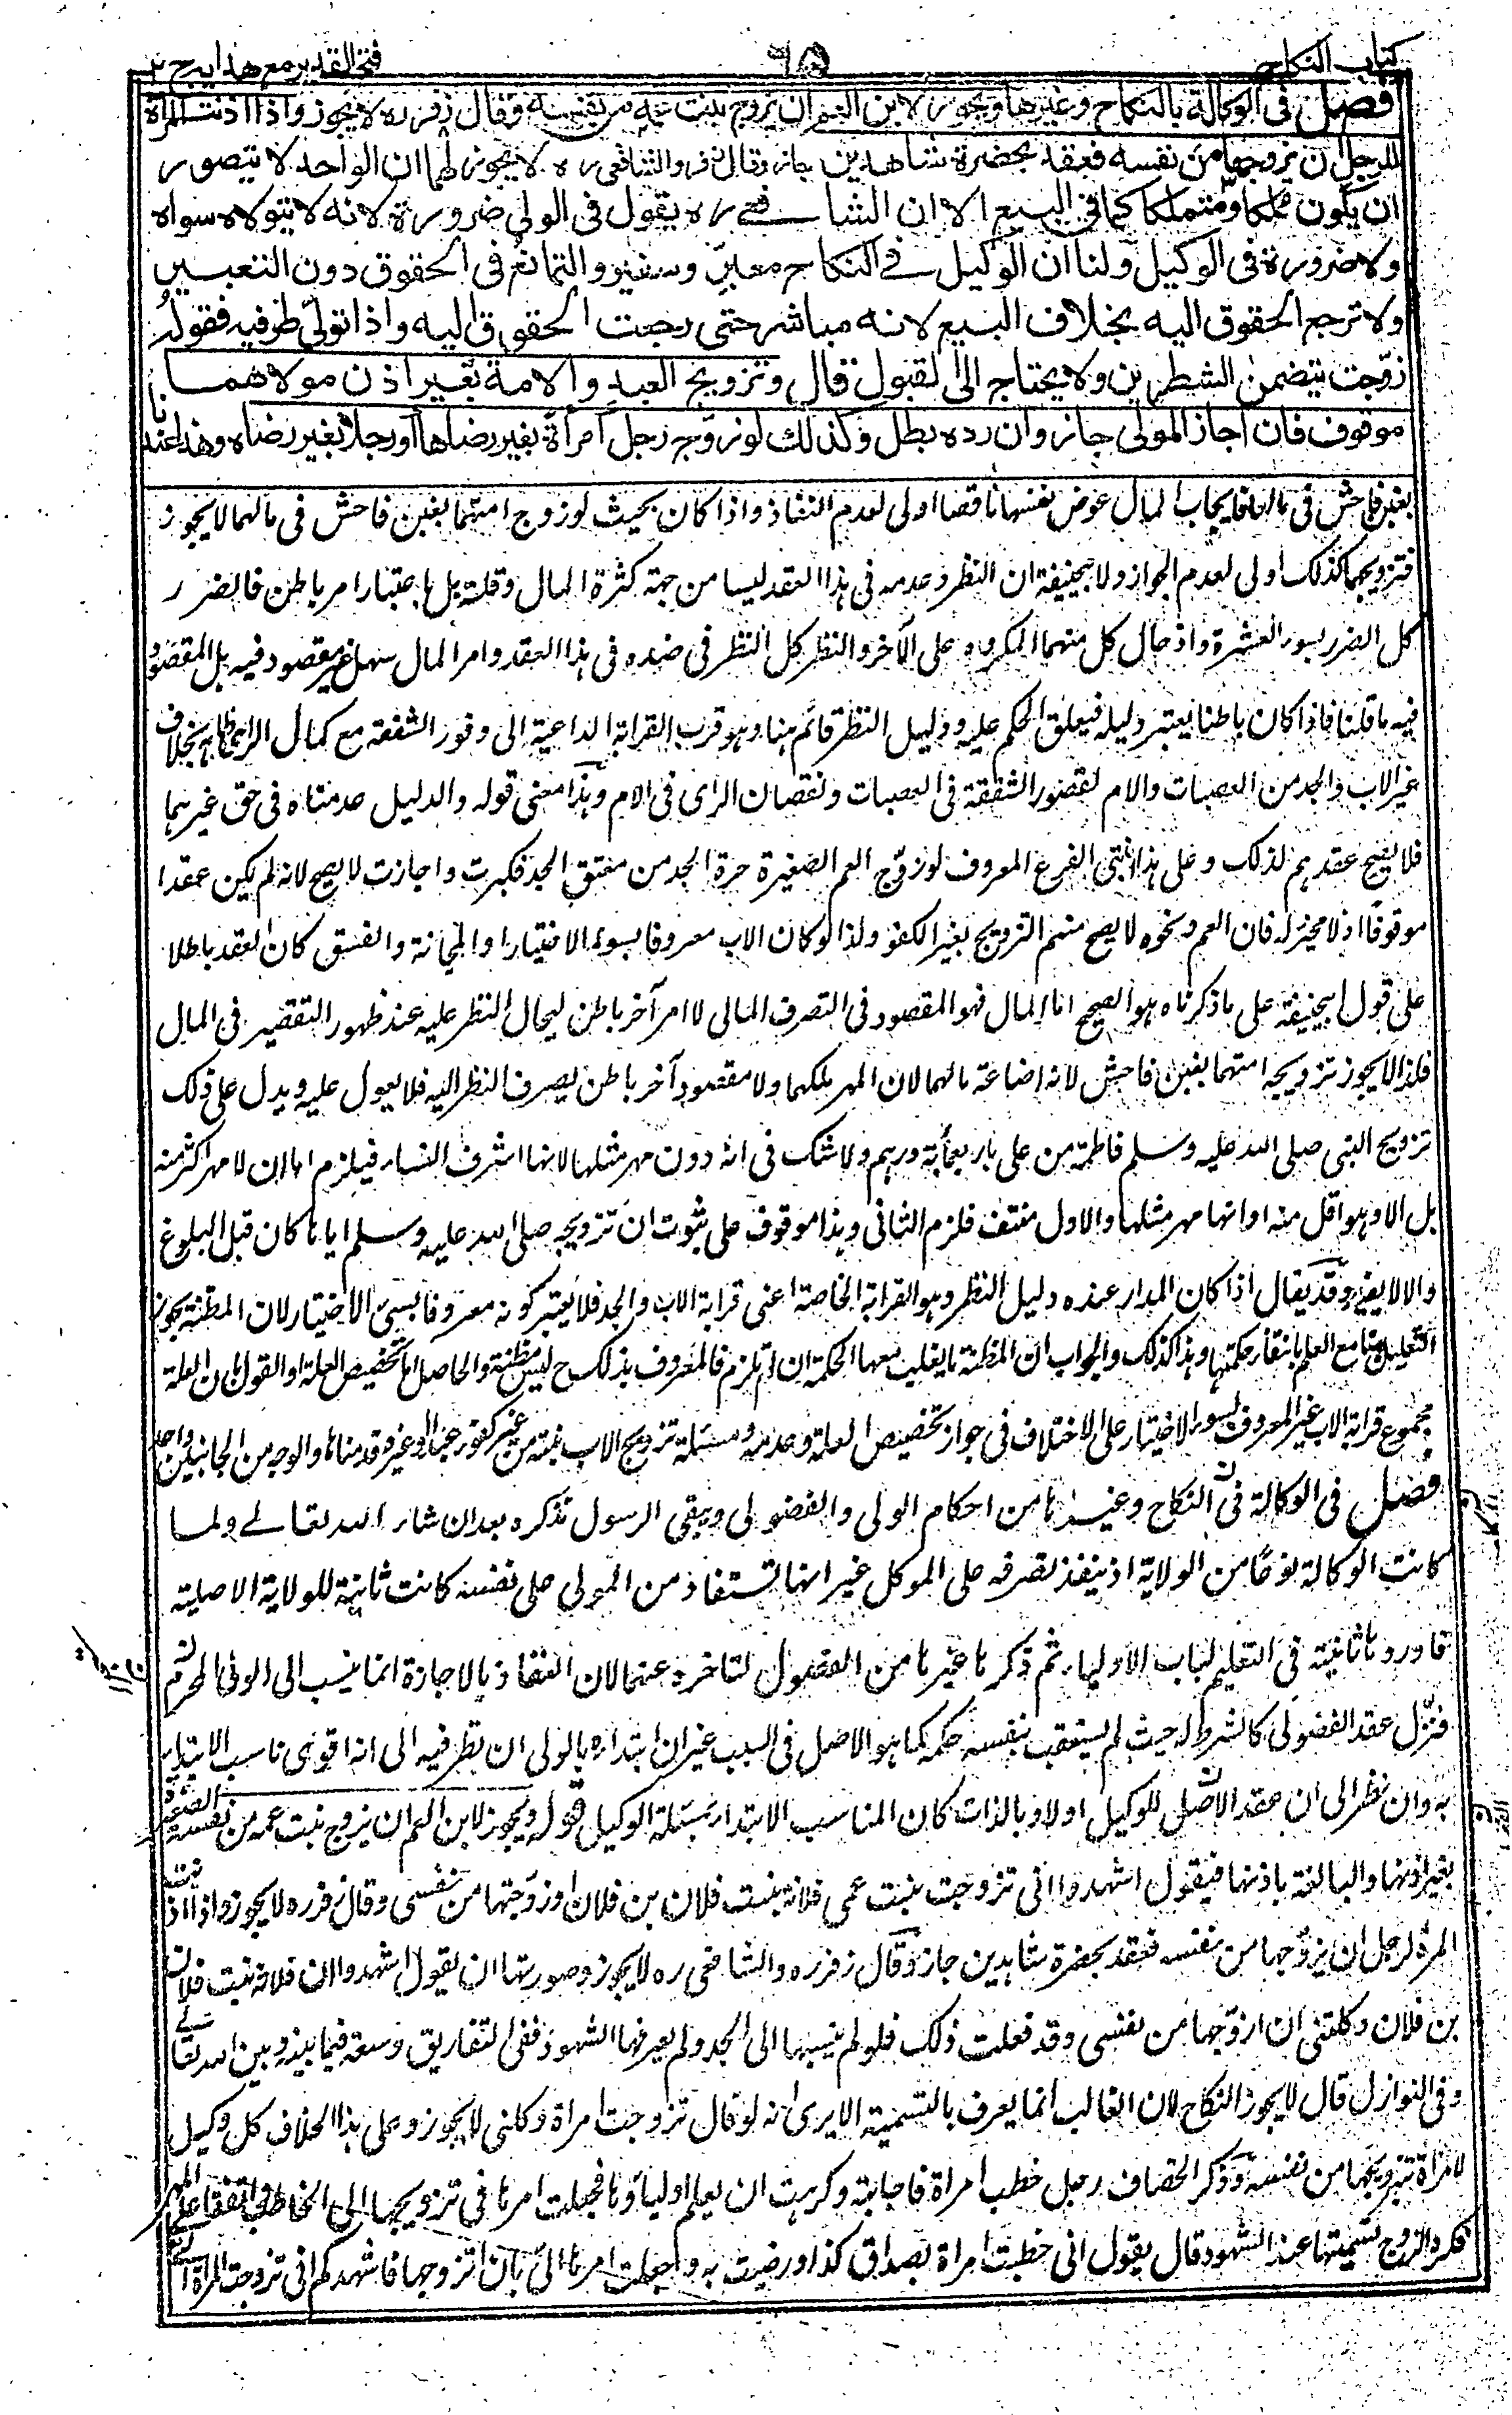 كتاب النكاح
٦٥
فتح القدير مع هدايه ج ٢
فصل فى الوكالة بالنكاح وغيرها ويجوز لابن العم ان يزوج بنت عمه من نفسه وقال زفر ره لا يجوز واذا اذنت المرأة
للرجل ان يزوجها من نفسه فعقد بحضرة شاهدين جاز وقال زفر والشافعى ره لا يجوز لهما ان الواحد لا يتصور
ان يكون مملكا ومتملكا كما فى البيع الا ان الشافعى ره يقول فى الولى ضرورة لانه لا يتولاه سواه
ولا ضرورة فى الوكيل ولنا ان الوكيل فى النكاح معبر وسفير والتمانع فى الحقوق دون التعبير
ولا ترجع الحقوق اليه بخلاف البيع لانه مباشر حتى رجعت الحقوق اليه واذا تولى طرفيه فقوله
زوجت يتضمن الشطرين ولا يحتاج الى القبول قال وتزويج العبد والامة بغير اذن مولاهما
موقوف فان اجاز المولى جاز وان رده بطل وكذلك لو زوج رجل امرأة بغير رضاها او رجلا بغير رضاه وهذا عندنا
بغبن فاحش فى مالها فايجاب المال عوض نفسها ناقصا اولى لعدم النفاذ واذا كان بحيث لو زوج امتهما بغبن فاحش فى مالهما لا يجوز
فتزويجهما كذلك اولى لعدم الجواز ولابيحنيفة ان النظر وعدمه فى هذا العقد ليسا من جهة كثرة المال وقلته بل باعتبار امر باطن فالضرر
كل الضرر بسوء العشرة وادخال كل منهما المكروه على الآخر والنظر كل النظر فى ضده فى هذا العقد وامر المال سهل غير مقصود فيه بل المقصود
فيه ما قلنا فاذا كان باطنا يعتبر دليله فيعلق الحكم عليه ودليل النظر قائم هنا وهو قرب القرابة الداعية الى وفور الشفقة مع كمال الرأى ظاهرا بخلاف
غير الاب والجد من العصبات والام لقصور الشفقة فى العصبات ونقصان الراى فى الام وهذا معنى قوله والدليل عدمناه فى حق غيرهما
فلا يصح عقدهم لذلك وعلى هذا انبنى الفرع المعروف لو زوج العم الصغيرة حرة الجد من معتق الجد فكبرت واجازت لا يصح لانه لم يكن عقدا
موقوفا اذ لا مجيز له فان العم ونحوه لا يصح منهم التزويج بغير الكفو ولذا لو كان الاب معروفا بسوء الاختيار او المجانة والفسق كان العقد باطلا
على قول ابيحنيفة على ما ذكرناه هو الصحيح اما المال فهو المقصود فى التصرف المالى لا امر آخر باطن ليحال النظر عليه عند ظهور التقصير فى المال
فلذا لا يجوز تزويجه امتهما بغبن فاحش لانه اضاعة مالهما لان المهر ملكهما ولا مقصود آخر باطن يصرف النظر اليه فلا يعول عليه ويدل على ذلك
تزويج النبى صلى الله عليه وسلم فاطمة من على باربعمائة درهم ولا شك فى انه دون مهر مثلها لانها اشرف النساء فيلزم اما ان لا مهر اكثر منه
بل الا وهو اقل منه او انها مهر مثلها والاول منتف فلزم الثانى وهذا موقوف على ثبوت ان تزويجه صلى الله عليه وسلم اياها كان قبل البلوغ
والا لا يفيد وقد يقال اذا كان المدار عنده دليل النظر وهو القرابة الخاصة اعنى قرابة الاب والجد فلا يعتبر كونه معروفا بسئ الاختيار لان المظنة يجوز
التعليل بها مع العلم بانتفاء حكمتها وهذا كذلك والجواب ان المظنة ما يغلب معها الحكمة ان لم تلزم فالمعروف بذلك ح ليس مظنة والحاصل اما تخصيص العلة او القول بان العلة
مجموع قرابة الاب غير المعروف بسوء الاختيار على الاختلاف فى جواز تخصيص العلة وعدمه ومسئلة تزويج الاب بنته من غير كفو عبد او غيره قدمناها والوجه من الجانبين واحد
فصل فى الوكالة فى النكاح وغيرها من احكام الولى والفضولى ويبقى الرسول نذكره بعد ان شاء الله تعالى ولما
كانت الوكالة نوعا من الولاية اذ ينفذ تصرفه على الموكل غير انها تستفاد من المولى على نفسه كانت ثانية للولاية الاصلية
فاوردها ثانية فى التعليم لباب الاولياء ثم ذكر ما غيرها من الفضول لتاخره عنهما لان النفاذ بالاجازة انما ينسب الى الولى المجيز
فنزل عقد الفضولى كالشرط له حيث لم يستعقب بنفسه حكمه كما هو الاصل فى السبب غير ان ابتداءه بالولى ان نظر فيه الى انه اقوى ناسب الابتداء
به وان نظر الى ان عقد الاصل للوكيل اولا وبالذات كان المناسب الابتداء بمسئلة الوكيل قوله ويجوز لابن العم ان يزوج بنت عمه من نفسه الصغيرة
بغير اذنها والبالغة باذنها فيقول اشهدوا انى تزوجت بنت عمى فلانة بنت فلان بن فلان او زوجتها من نفسى وقال زفر ره لا يجوز واذا اذنت
المرأة لرجل ان يزوجها من نفسه فعقد بحضرة شاهدين جاز وقال زفر ره والشافعى ره لا يجوز وصورتها ان يقول اشهدوا ان فلانة بنت فلان
بن فلان وكلتنى ان ازوجها من نفسى وقد فعلت ذلك فلو لم ينسبها الى الجد ولم يعرفها الشهود ففى التفاريق وسعه فيما بينه وبين الله تعالى
وفى النوازل قال لا يجوز النكاح لان الغائب انما يعرف بالتسمية الا يرى انه لو قال تزوجت امرأة وكلتنى لا يجوز وعلى هذا الخلاف كل وكيل
لامرأة تزويجها من نفسه وذكر الخصاف رجل خطب امرأة فاجابته وكرهت ان يعلم اولياؤها فجعلت امرها فى تزويجها الى الخاطب واتفقا على المهر
فكره الزوج تسميتها عند الشهود قال يقول انى خطبت امرأة بصداق كذا ورضيت به وجعلت امرها الى بان اتزوجها فاشهدكم انى تزوجت المرأة التى